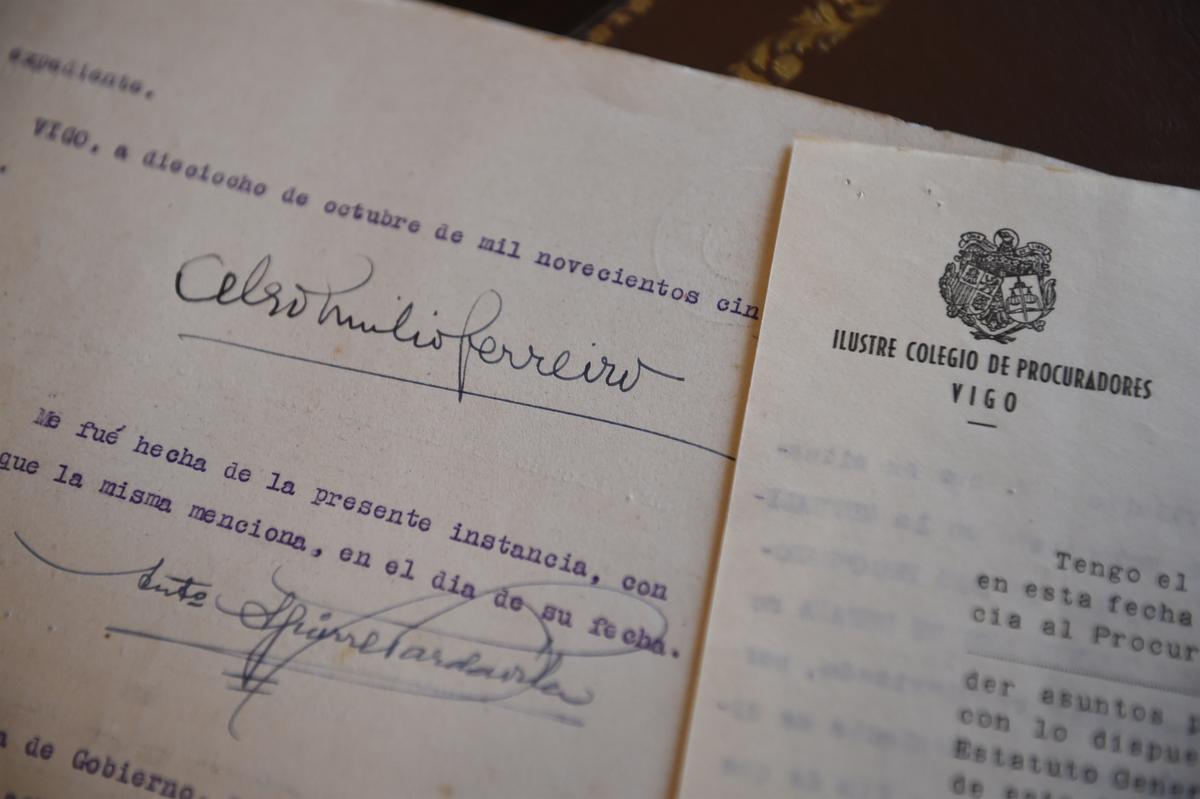 expediente.
VIGO, a dieciocho de octubre de mil novecientos cin
Celso Emilio Ferreiro
Me fué hecha de la presente instancia, con
que la misma menciona, en el dia de su fecha.
Antº
de Gobierno.
ILUSTRE COLEGIO DE PROCURADORES
VIGO
Tengo el
en esta fecha
cia al Procur
der asuntos
con lo dispue
Estatuto Gene